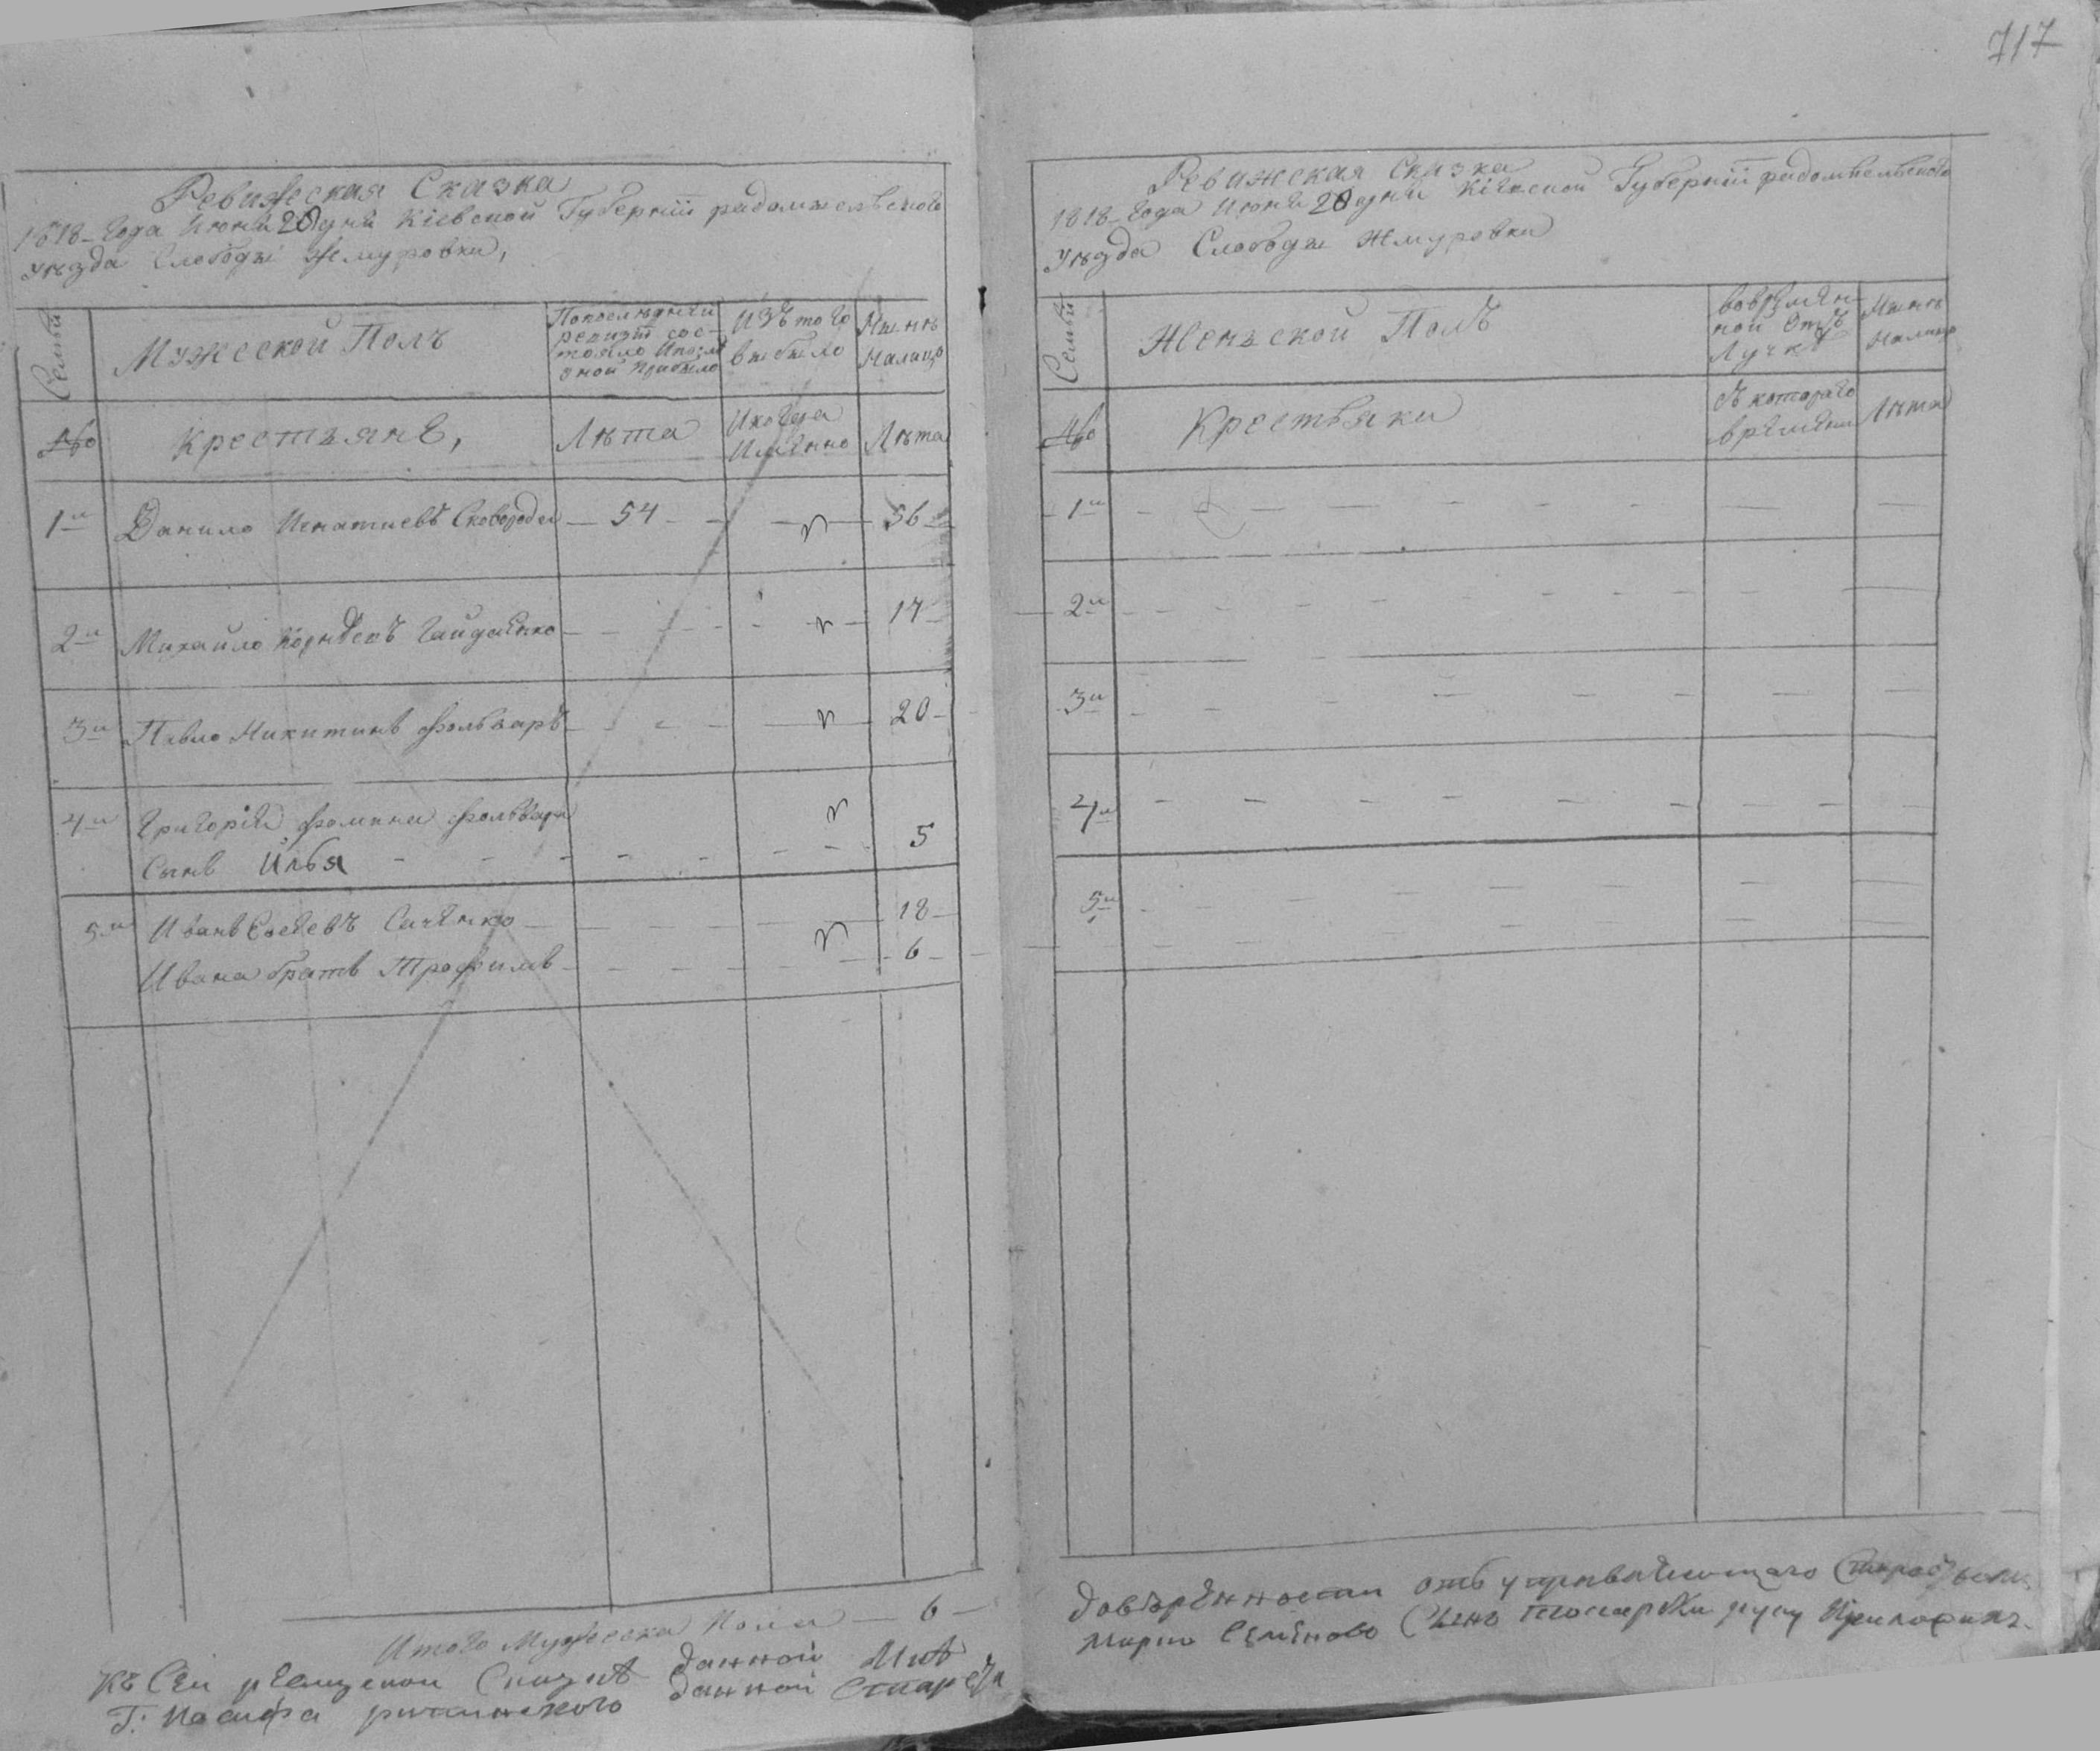 717
Ревижеская Сказка
1818 Года Июня 20 дня Кіевской Губерніи радомысльского
уѣзда Слободы Жмуровки,
Семьи
Мужеской Полъ
По последней ревизіи состояло и после оной прибыло
Изъ того выбыло
Нынѣ налицо
№
Крестьяне,
Лѣта
Когда Именно
Лѣта
1й Данило Игнатиевъ Сковорода 54 56
2й Михайло Корнѣевъ Гайдаенко 17
3й Павло Никитинъ Фольваръ 20
4й Григорій Фоминъ Фольвара
Сынъ Илья 5
5й Иванъ Сичѣнко 18
Ивана братъ Трофимъ 6
Итого Мужеска пола 6
Къ Сей Сказкѣ данной Мнѣ
Г: Иосифа данной
Ревижеская Сказка
1818 Года Июня 20 дня Кіевской Губерніи радомысльского
уѣзда Слободы Жмуровки
Семьи
Женской Полъ
Во временной Отлучке
Нынѣ налицо
№
Крестьянки
Съ котораго времени
Лѣта
1й
2й
3й
4й
5й
довѣренности отъ управляющаго
Марко Семѣново руку приложилъ.